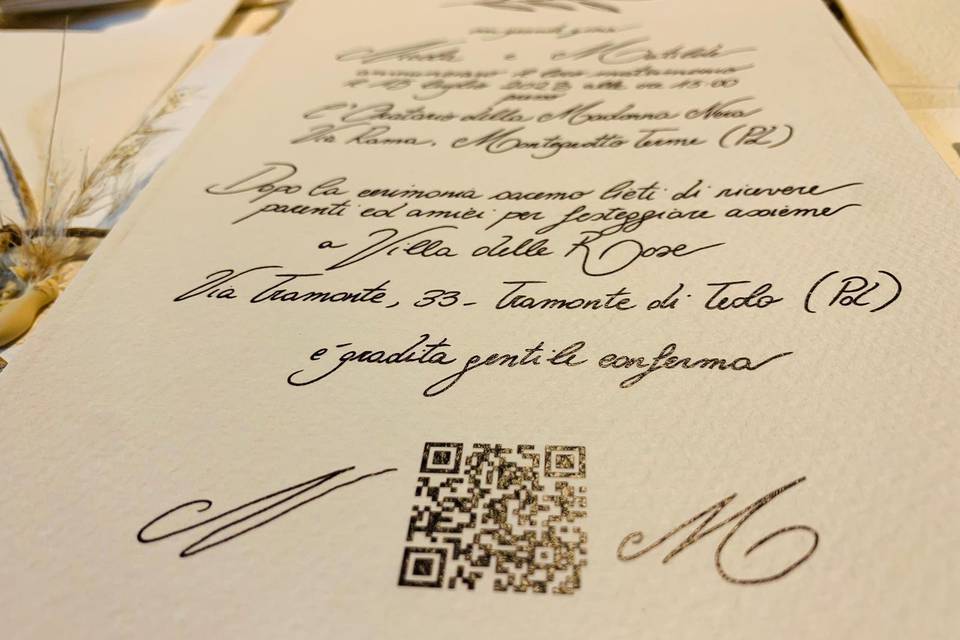 con grande gioia
Nicola e Matilde
annunciano il loro matrimonio
il 15 luglio 2023 alle ore 15:00
presso
l'Oratorio della Madonna Nera
Via Roma, Montegrotto Terme (Pd)
Dopo la cerimonia saremo lieti di ricevere
parenti ed amici per festeggiare assieme
a Villa delle Rose
Via Tramonte, 33 - Tramonte di Teolo (Pd)
è gradita gentile conferma
N M